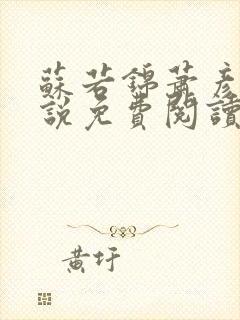 蘇若錦蕭彥
說免費閱讀
黃圩